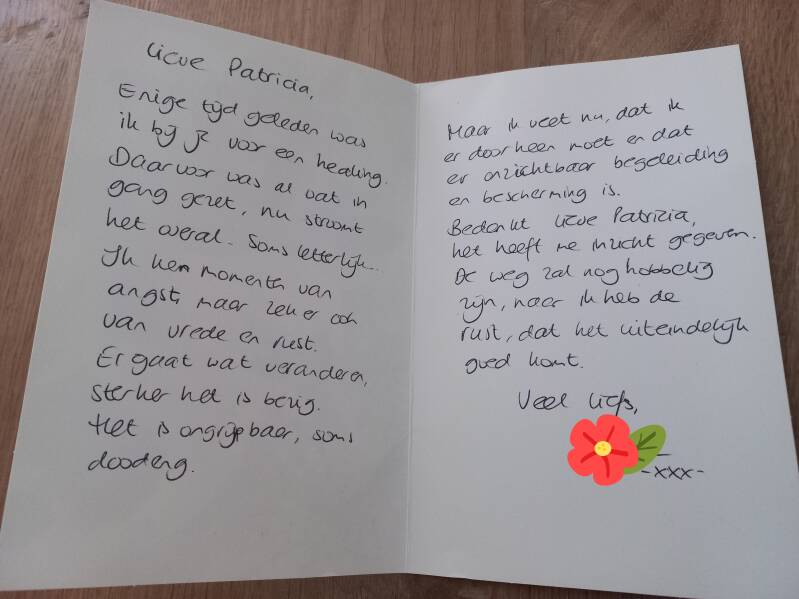 Lieve Patricia,
Enige tijd geleden was
ik bij je voor een healing.
Daarvoor was al wat in
gang gezet, nu stroomt
het overal. Soms letterlijk...
Ik ken momenten van
angst, maar zeker ook
van vrede en rust.
Er gaat wat veranderen,
sterker het is bezig.
Het is ongrijpbaar, soms
doodeng.
Maar ik weet nu, dat ik
er doorheen moet en dat
er onzichtbaar begeleiding
en bescherming is.
Bedankt lieve Patrizia,
het heeft me inzicht gegeven.
De weg zal nog hobbelig
zijn, maar ik heb de
rust, dat het uiteindelijk
goed komt.
Veel liefs,
-xxx-